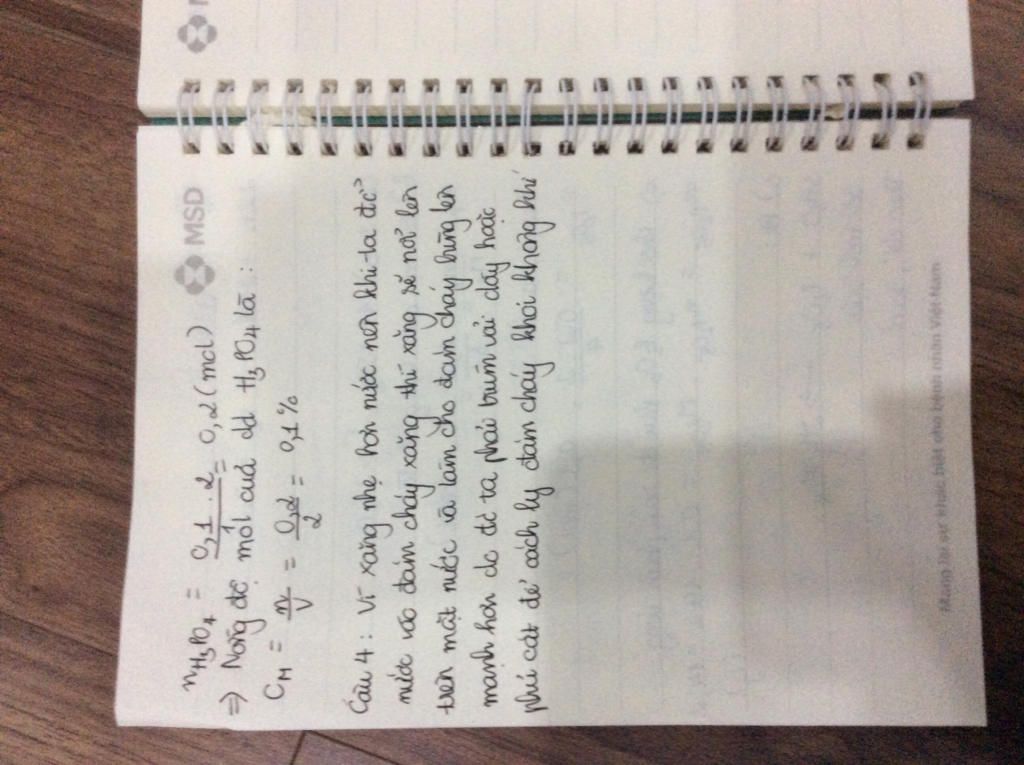 MSD
nH3PO4 = 0,1 . 2 / 1 = 0,2 (mol)
⇒ Nồng độ mol của dd H3PO4 là :
CM = n/V = 0,2/2 = 0,1 %
Câu 4 : Vì xăng nhẹ hơn nước nên khi ta đổ
nước vào đám cháy xăng thì xăng sẽ nổi lên
trên mặt nước và làm cho đám cháy bùng lên
mạnh hơn do đó ta phải trùm vải dầy hoặc
phủ cát để cách ly đám cháy khỏi không khí
Mang lại sự khác biệt cho bệnh nhân Việt Nam